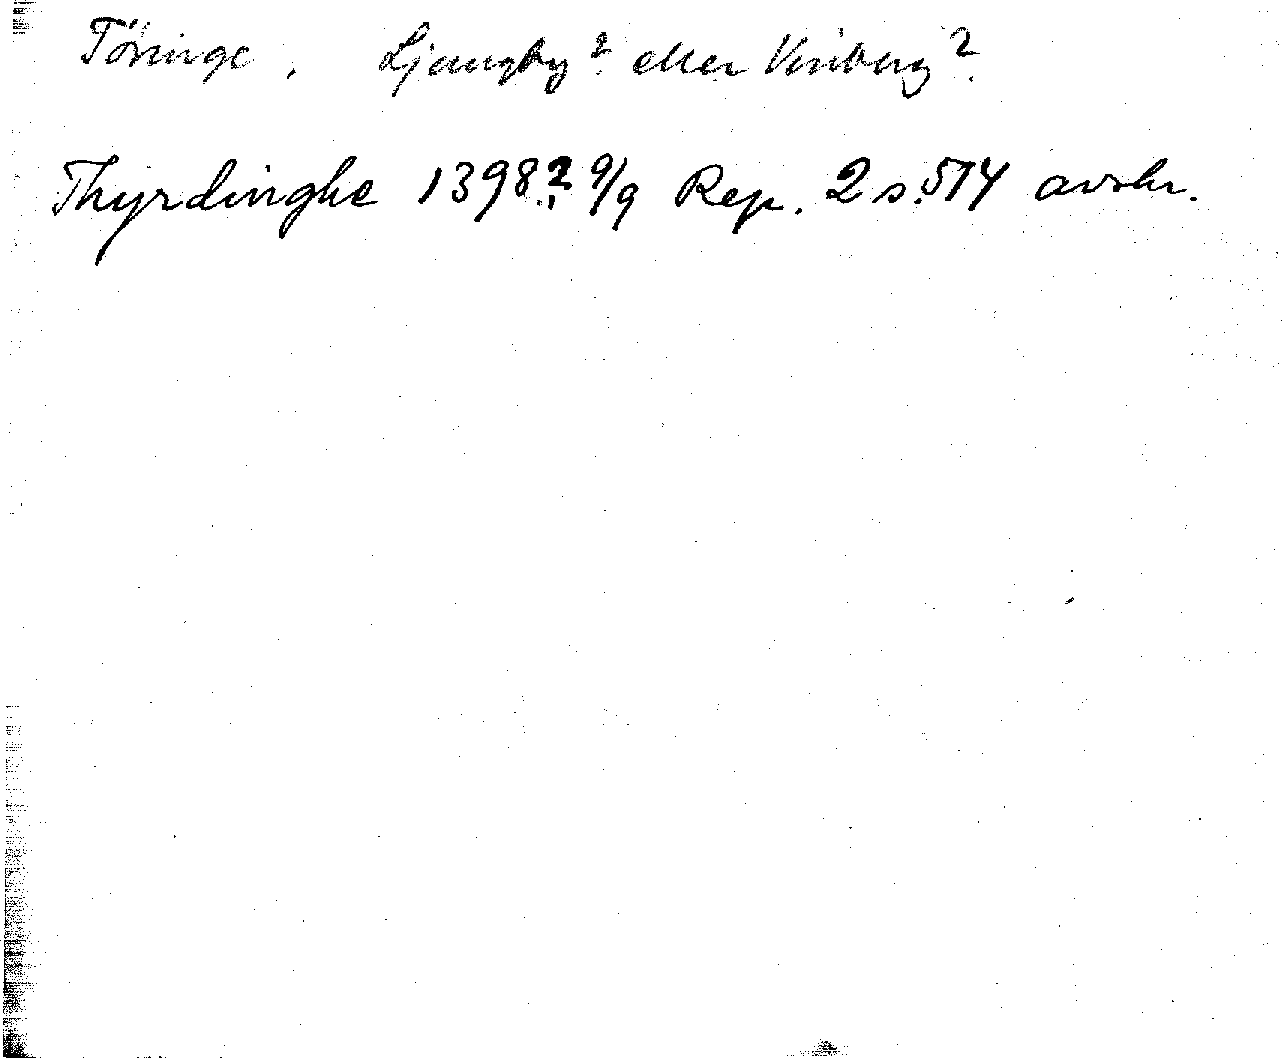 Töringe, Ljungby? eller Vinberg?
Thyrdinghe 1398? 9/9 Rep. 2 s. 514 avskr.